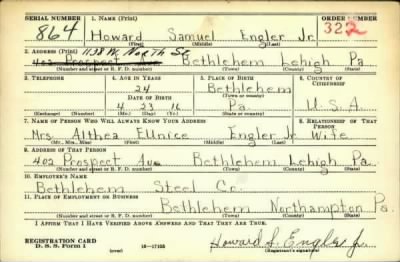 SERIAL NUMBER 1. NAME (Print) ORDER NUMBER
864 Howard Samuel Engler Jr 322
(First) (Middle) (Last)
2. ADDRESS (Print) 1138 W. North St
402 Prospect Ave Bethlehem Lehigh Pa
(Number and street or R. F. D. number) (Town) (County) (State)
3. TELEPHONE 4. AGE IN YEARS 5. PLACE OF BIRTH 6. COUNTRY OF CITIZENSHIP
24 Bethlehem
DATE OF BIRTH (Town or county)
4 23 16 Pa. U.S.A.
(Exchange) (Number) (Mo.) (Day) (Yr.) (State or country)
7. NAME OF PERSON WHO WILL ALWAYS KNOW YOUR ADDRESS 8. RELATIONSHIP OF THAT PERSON
Mrs. Althea Eunice Engler Jr Wife
(Mr., Mrs., Miss) (First) (Middle) (Last)
9. ADDRESS OF THAT PERSON
402 Prospect Ave Bethlehem Lehigh Pa.
(Number and street or R. F. D. number) (Town) (County) (State)
10. EMPLOYER'S NAME
Bethlehem Steel Co.
11. PLACE OF EMPLOYMENT OR BUSINESS
Bethlehem Northampton Pa.
(Number and street or R. F. D. number) (Town) (County) (State)
I AFFIRM THAT I HAVE VERIFIED ABOVE ANSWERS AND THAT THEY ARE TRUE.
REGISTRATION CARD
D. S. S. Form 1 16—17105 Howard S. Engler Jr.
(Registrant's signature)